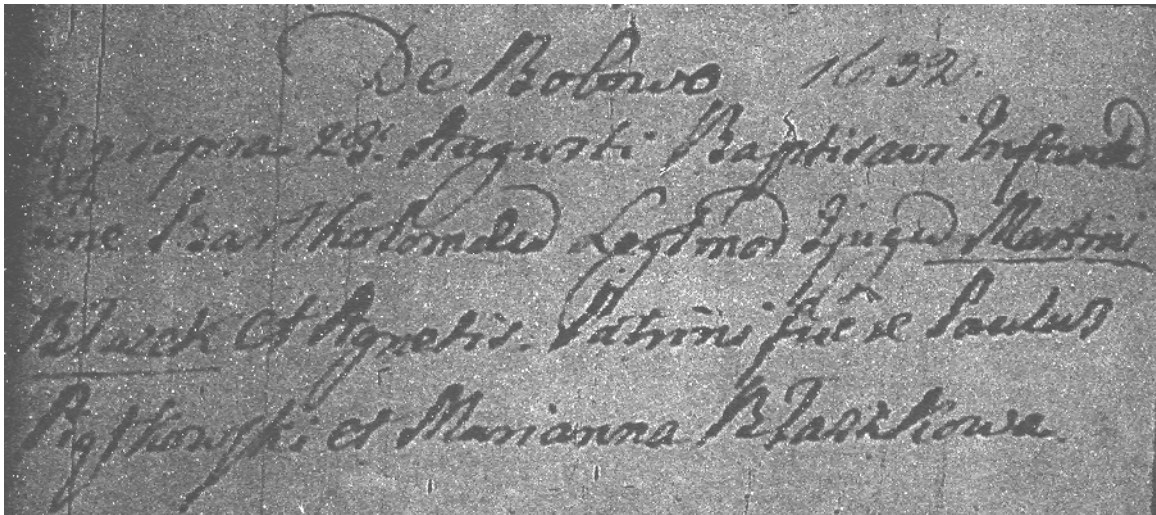 De Bobowo 1632.
supra 28. Augusti Baptisavi Infante
ne Bartholomeu Legtmor Martini
Blaeck et Agnetis. Patrini fuere Paulus
Piątkowski et Marianna Błaszkowa.